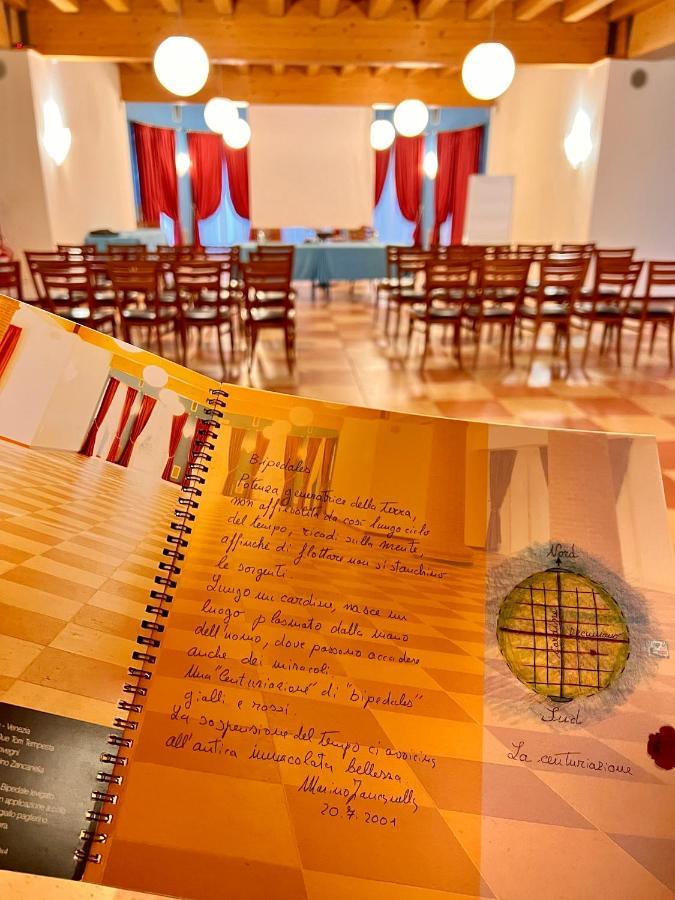 Bipedales
Potenza generatrice della terra,
non affievolita da così lungo ciclo
del tempo, ricadi sulla mente,
affinché di flottare non si stanchino
le sorgenti.
Lungo un cardine, nasce un
luogo plasmato dalla mano
dell'uomo, dove possono accadere
anche dei miracoli.
Una "centuriazione" di "bipedales"
gialli e rossi.
La sospensione del tempo ci avvicina
all'antica immacolata bellezza.
Marino Zancanella
20.7.2001
Nord
Cardine
Decumano
Sud
La centuriazione
- Venezia
Due Torri Tempesta
ino Zancanella
Bipedale levigato
n applicazione a colle
giallo paglierino